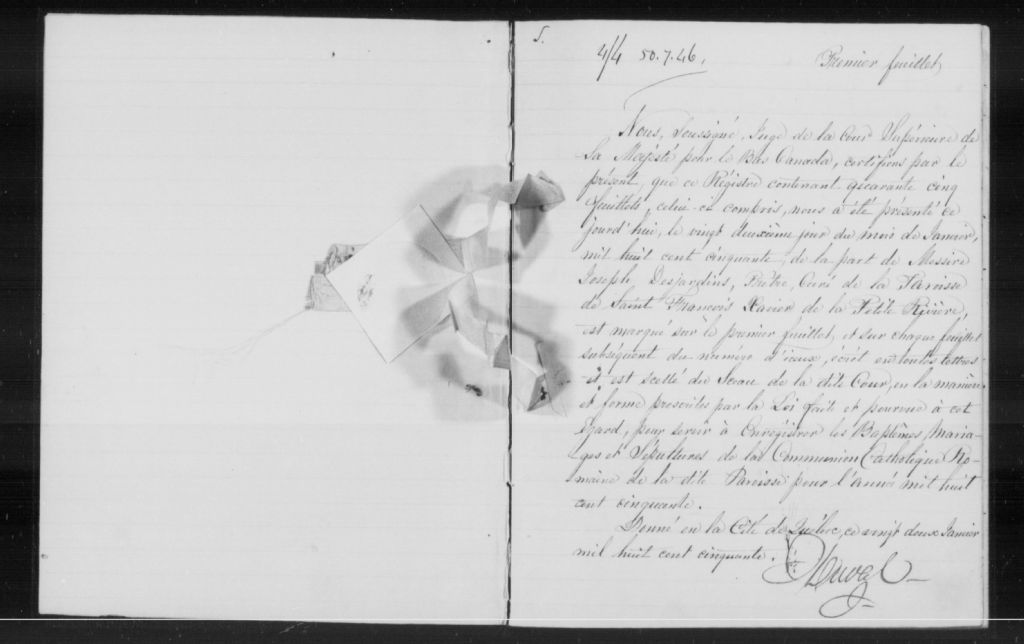 S.
4/4 50.7.46.
Premier feuillet,
Nous, Soussigné, Juge de la Cour Supérieure de
Sa Majésté pour le Bas Canada, certifions par le
présent, que ce Régistre contenant quarante cinq
feuillets, celui-ci compris, nous a été présenté ce
jourd'hui, le vingt deuxième jour du mois de Janvier,
mil huit cent cinquante, de la part de Messire
Joseph Desjardins, Prêtre, Curé de la Paroisse
de Saint François Xavier de la Petite Rivière,
est marqué sur le premier feuillet, et sur chaque feuillet
subséquent du numéro d'iceux, écrit en toutes lettres
et est scellé du Sceau de la dite Cour, en la manière
et forme prescrites par la Loi faite et pourvue à cet
égard, pour servir à Enrégistrer les Baptêmes, Maria-
ges et Sépultures de la Communion Catholique Ro-
maine de la dite Paroisse pour l'année mil huit
cent cinquante.
Donné en la Cité de Québec, ce vingt deux Janvier
mil huit cent cinquante.
Duval